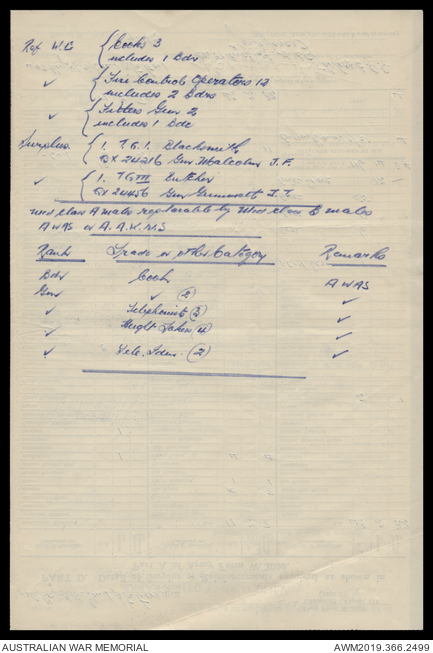 Ref W.E { Cooks 3
includes 1 Bdr
{ Fire Control Operators 12
includes 2 Bdrs
{ Fitters Gun 2
includes 1 Bdr
Surplus { 1. T.G.1. Blacksmith
QX 24216 Gnr Malcolm J.F.
{ 1. TG III Butcher
QX 24456 Gnr J.T.
Med class A males replacable by Med class B males
AWAS or A.A.M.W.S
Rank Trade or other Category Remarks
Bdr Cook AWAS
Gnr ✓ (2) ✓
✓ Telephonist (3) ✓
✓ Height Takers (4) ✓
✓ Tele. Iden. (2) ✓
AUSTRALIAN WAR MEMORIAL
AWM2019.366.2499